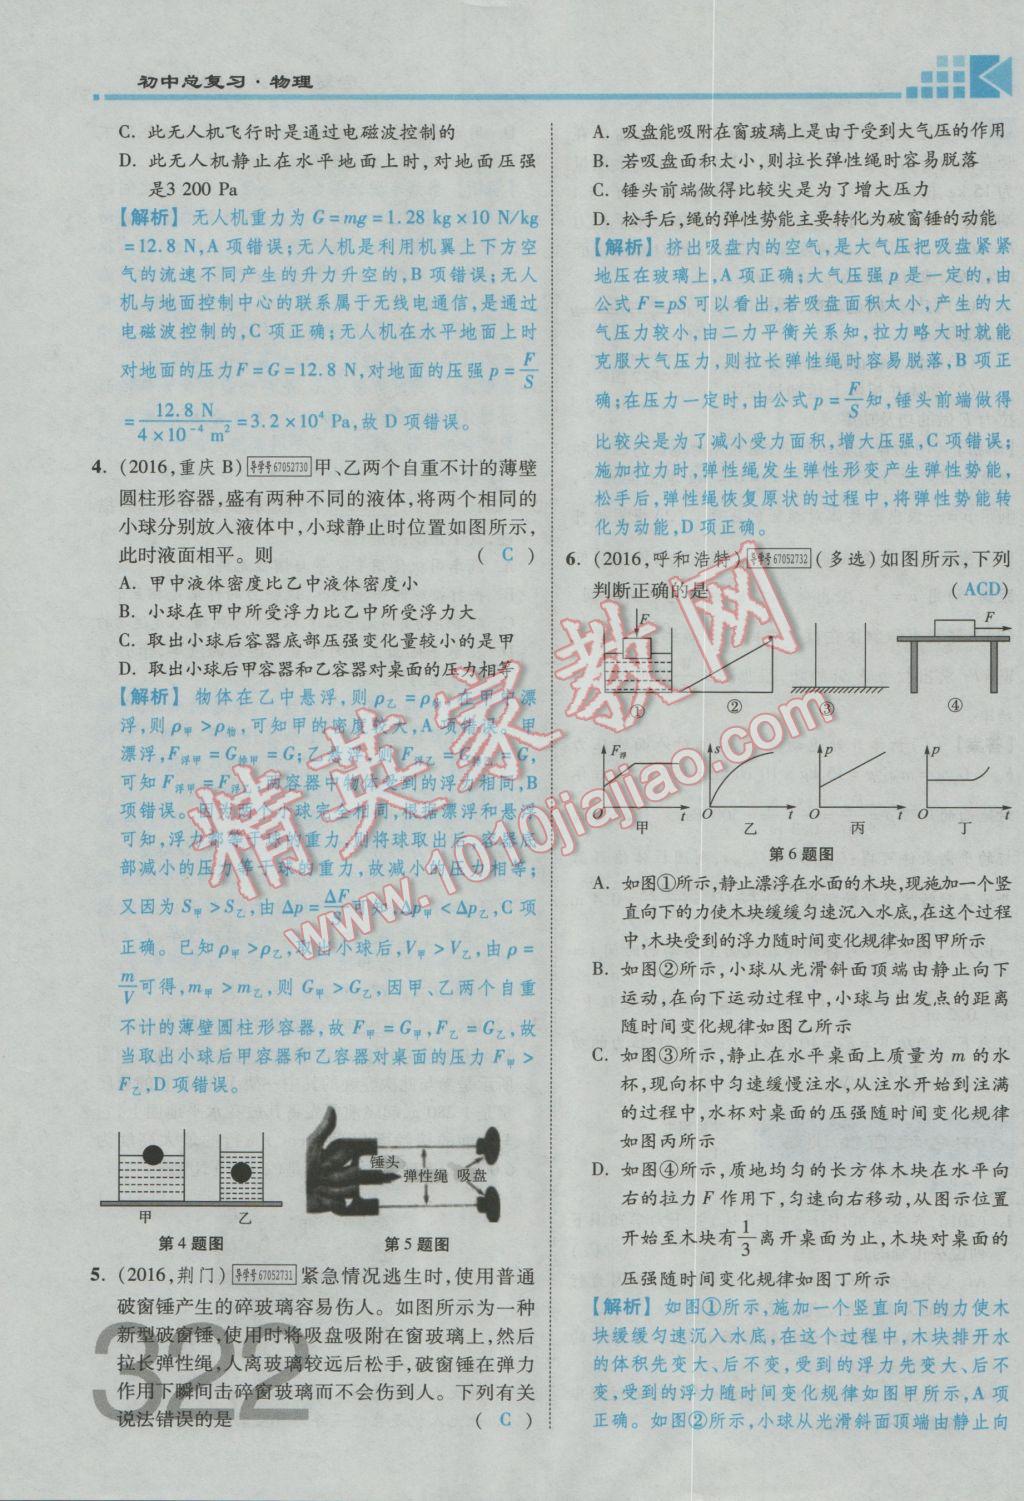 初中总复习·物理
C. 此无人机飞行时是通过电磁波控制的
D. 此无人机静止在水平地面上时,对地面压强
是3 200 Pa
【解析】 无人机重力为 G=mg=1.28 kg×10 N/kg
=12.8 N,A 项错误;无人机是利用机翼上下方空
气的流速不同产生的升力升空的,B 项错误;无人
机与地面控制中心的联系属于无线电通信,是通过
电磁波控制的,C 项正确;无人机在水平地面上时
对地面的压力F=G=12.8 N,对地面的压强 p=F/S
=12.8 N/4×10⁻⁴ m²=3.2×10⁴ Pa,故 D 项错误。
4. (2016,重庆 B) 导学号 67052730 甲、乙两个自重不计的薄壁
圆柱形容器,盛有两种不同的液体,将两个相同的
小球分别放入液体中,小球静止时位置如图所示,
此时液面相平。则 ( C )
A. 甲中液体密度比乙中液体密度小
B. 小球在甲中所受浮力比乙中所受浮力大
C. 取出小球后容器底部压强变化量较小的是甲
D. 取出小球后甲容器和乙容器对桌面的压力相等
【解析】 物体在乙中悬浮,则 ρ乙=ρ物,在甲中漂
浮,则 ρ甲>ρ物,可知甲的密度较大,A 项错误。甲
漂浮,F浮甲=G排甲=G;乙悬浮,则 F浮乙=G排乙=G,
可知 F浮甲=F浮乙,两容器中物体受到的浮力相同,B
项错误。因为两个小球完全相同,根据漂浮和悬浮
可知,浮力都等于球的重力,则将球取出后,容器底
部减小的压力等于球的重力,故减小的压力相等;
又因为 S甲>S乙,由 Δp=ΔF/S可知,Δp甲<Δp乙,C 项
正确。已知 ρ甲>ρ乙,取出小球后,V甲>V乙,由 ρ=
m/V可得,m甲>m乙,则 G甲>G乙,因甲、乙两个自重
不计的薄壁圆柱形容器,故 F甲=G甲,F乙=G乙,故
当取出小球后甲容器和乙容器对桌面的压力 F甲>
F乙,D 项错误。
甲 乙
第 4 题图
锤头 弹性绳 吸盘
第 5 题图
5. (2016,荆门) 导学号 67052731 紧急情况逃生时,使用普通
破窗锤产生的碎玻璃容易伤人。如图所示为一种
新型破窗锤,使用时将吸盘吸附在窗玻璃上,然后
拉长弹性绳,人离玻璃较远后松手,破窗锤在弹力
作用下瞬间击碎窗玻璃而不会伤到人。下列有关
说法错误的是 ( C )
322
A. 吸盘能吸附在窗玻璃上是由于受到大气压的作用
B. 若吸盘面积太小,则拉长弹性绳时容易脱落
C. 锤头前端做得比较尖是为了增大压力
D. 松手后,绳的弹性势能主要转化为破窗锤的动能
【解析】 挤出吸盘内的空气,是大气压把吸盘紧紧
地压在玻璃上,A 项正确;大气压强 p 是一定的,由
公式 F=pS 可以看出,若吸盘面积太小,产生的大
气压力较小,由二力平衡关系知,拉力略大时就能
克服大气压力,则拉长弹性绳时容易脱落,B 项正
确;在压力一定时,由公式 p=F/S知,锤头前端做得
比较尖是为了减小受力面积,增大压强,C 项错误;
施加拉力时,弹性绳发生弹性形变产生弹性势能,
松手后,弹性绳恢复原状的过程中,将弹性势能转
化为动能,D 项正确。
6. (2016,呼和浩特) 导学号 67052732 (多选)如图所示,下列
判断正确的是 ( ACD )
F F
① ② ③ ④
F浮 s p p
O t O t O t O t
甲 乙 丙 丁
第 6 题图
A. 如图①所示,静止漂浮在水面的木块,现施加一个竖
直向下的力使木块缓缓匀速沉入水底,在这个过程
中,木块受到的浮力随时间变化规律如图甲所示
B. 如图②所示,小球从光滑斜面顶端由静止向下
运动,在向下运动过程中,小球与出发点的距离
随时间变化规律如图乙所示
C. 如图③所示,静止在水平桌面上质量为 m 的水
杯,现向杯中匀速缓慢注水,从注水开始到注满
的过程中,水杯对桌面的压强随时间变化规律
如图丙所示
D. 如图④所示,质地均匀的长方体木块在水平向
右的拉力 F 作用下,匀速向右移动,从图示位置
开始至木块有1/3离开桌面为止,木块对桌面的
压强随时间变化规律如图丁所示
【解析】 如图①所示,施加一个竖直向下的力使木
块缓缓匀速沉入水底,在这个过程中,木块排开水
的体积先变大、后不变,受到的浮力先变大、后不
变,受到的浮力随时间变化规律如图甲所示,A 项
正确。如图②所示,小球从光滑斜面顶端由静止向
精英家教网
www.1010jiajiao.com